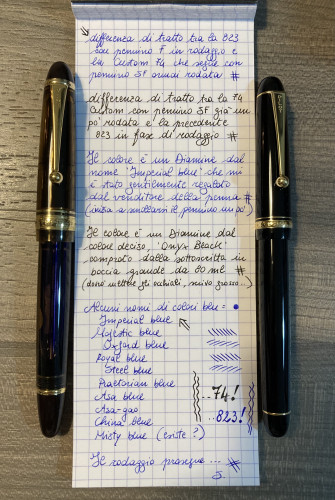 differenza di tratto tra la 823
con pennino F in rodaggio e
la Custom 74 che segue con
pennino SF ormai rodata #
differenza di tratto tra la 74
Custom con pennino SF già un
po' rodata e la precedente
823 in fase di rodaggio #
Il colore è un Diamine dal
nome "Imperial blue" che mi
è stato gentilmente regalato
dal venditore della penna #
(inizia a mollarsi il pennino un po')
Il colore è un Diamine dal
colore deciso, "Onyx Black"
comprato dalla sottoscritta in
boccia grande da 80 ml #
(dovrò mettere gli occhiali, scrivo grosso...)
Alcuni nomi di colori blu =
Imperial blue
Majestic blue
Oxford blue
Royal blue
Steel blue
Praetorian blue
Asa blue
Asa-gao
China blue
Misty blue (esiste?)
...74!
...823!
Il rodaggio prosegue... #
S.